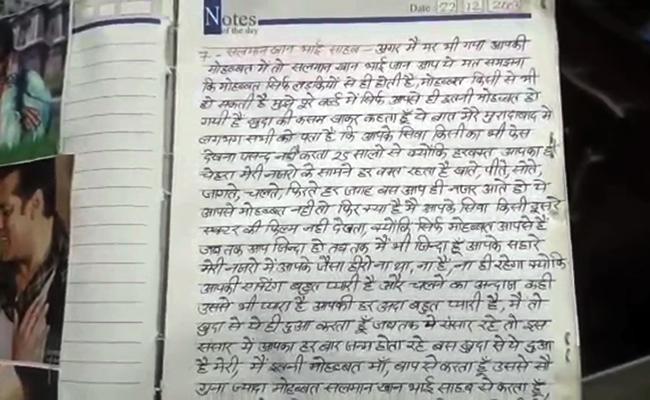 Notes
of the day
Date 22 12 2003
7- सलमान खान भाई साहब - अगर मैं मर भी गया आपकी
मोहब्बत में तो सलमान खान भाई जान आप ये मत समझना
कि मोहब्बत सिर्फ लडकियों से ही होती है, मोहब्बत किसी से भी
हो सकती है मुझे पूरे वर्ल्ड में सिर्फ आपसे ही इतनी मोहब्बत हो
गयी है खुदा की कसम खाकर कहता हूँ ये बात मेरे मुरादाबाद में
लगभग सभी को पता है कि आपके सिवा किसी का भी फेस
देखना पसन्द नहीं करता 25 सालो से क्योंकि हरवक्त आपका ही
चेहरा मेरी नजरो के सामने हर वक्त रहता है खाते, पीते, सोते,
जागते, चलते, फिरते हर जगह बस आप ही नजर आते हो ये
आपसे मोहब्बत नहीं तो फिर क्या है मैं आपके सिवा किसी दूसरे
एक्टर की फिल्म नही देखता, क्योंकि सिर्फ मोहब्बत आपसे है
जब तक आप जिन्दा हो तब तक मैं भी जिन्दा हूँ आपके सहारे
मेरी नजरो में आपके जैसा हीरो ना था, ना है, ना ही रहेगा क्योंकि
आपकी एक्टिंग बहुत प्यारी है और चलने का अन्दाज कही
उससे भी प्यारा है आपकी हर अदा बहुत प्यारी है, मैं तो
खुदा से ये ही दुआ करता हूँ जब तक ये संसार रहे तो इस
संसार में आपका हर बार जन्म होता रहे बस खुदा से ये दुआ
है मेरी, मैं इतनी मोहब्बत माँ, बाप से करता हूँ उससे सौ
गुना ज्यादा मोहब्बत सलमान खान भाई साहब से करता हूँ,